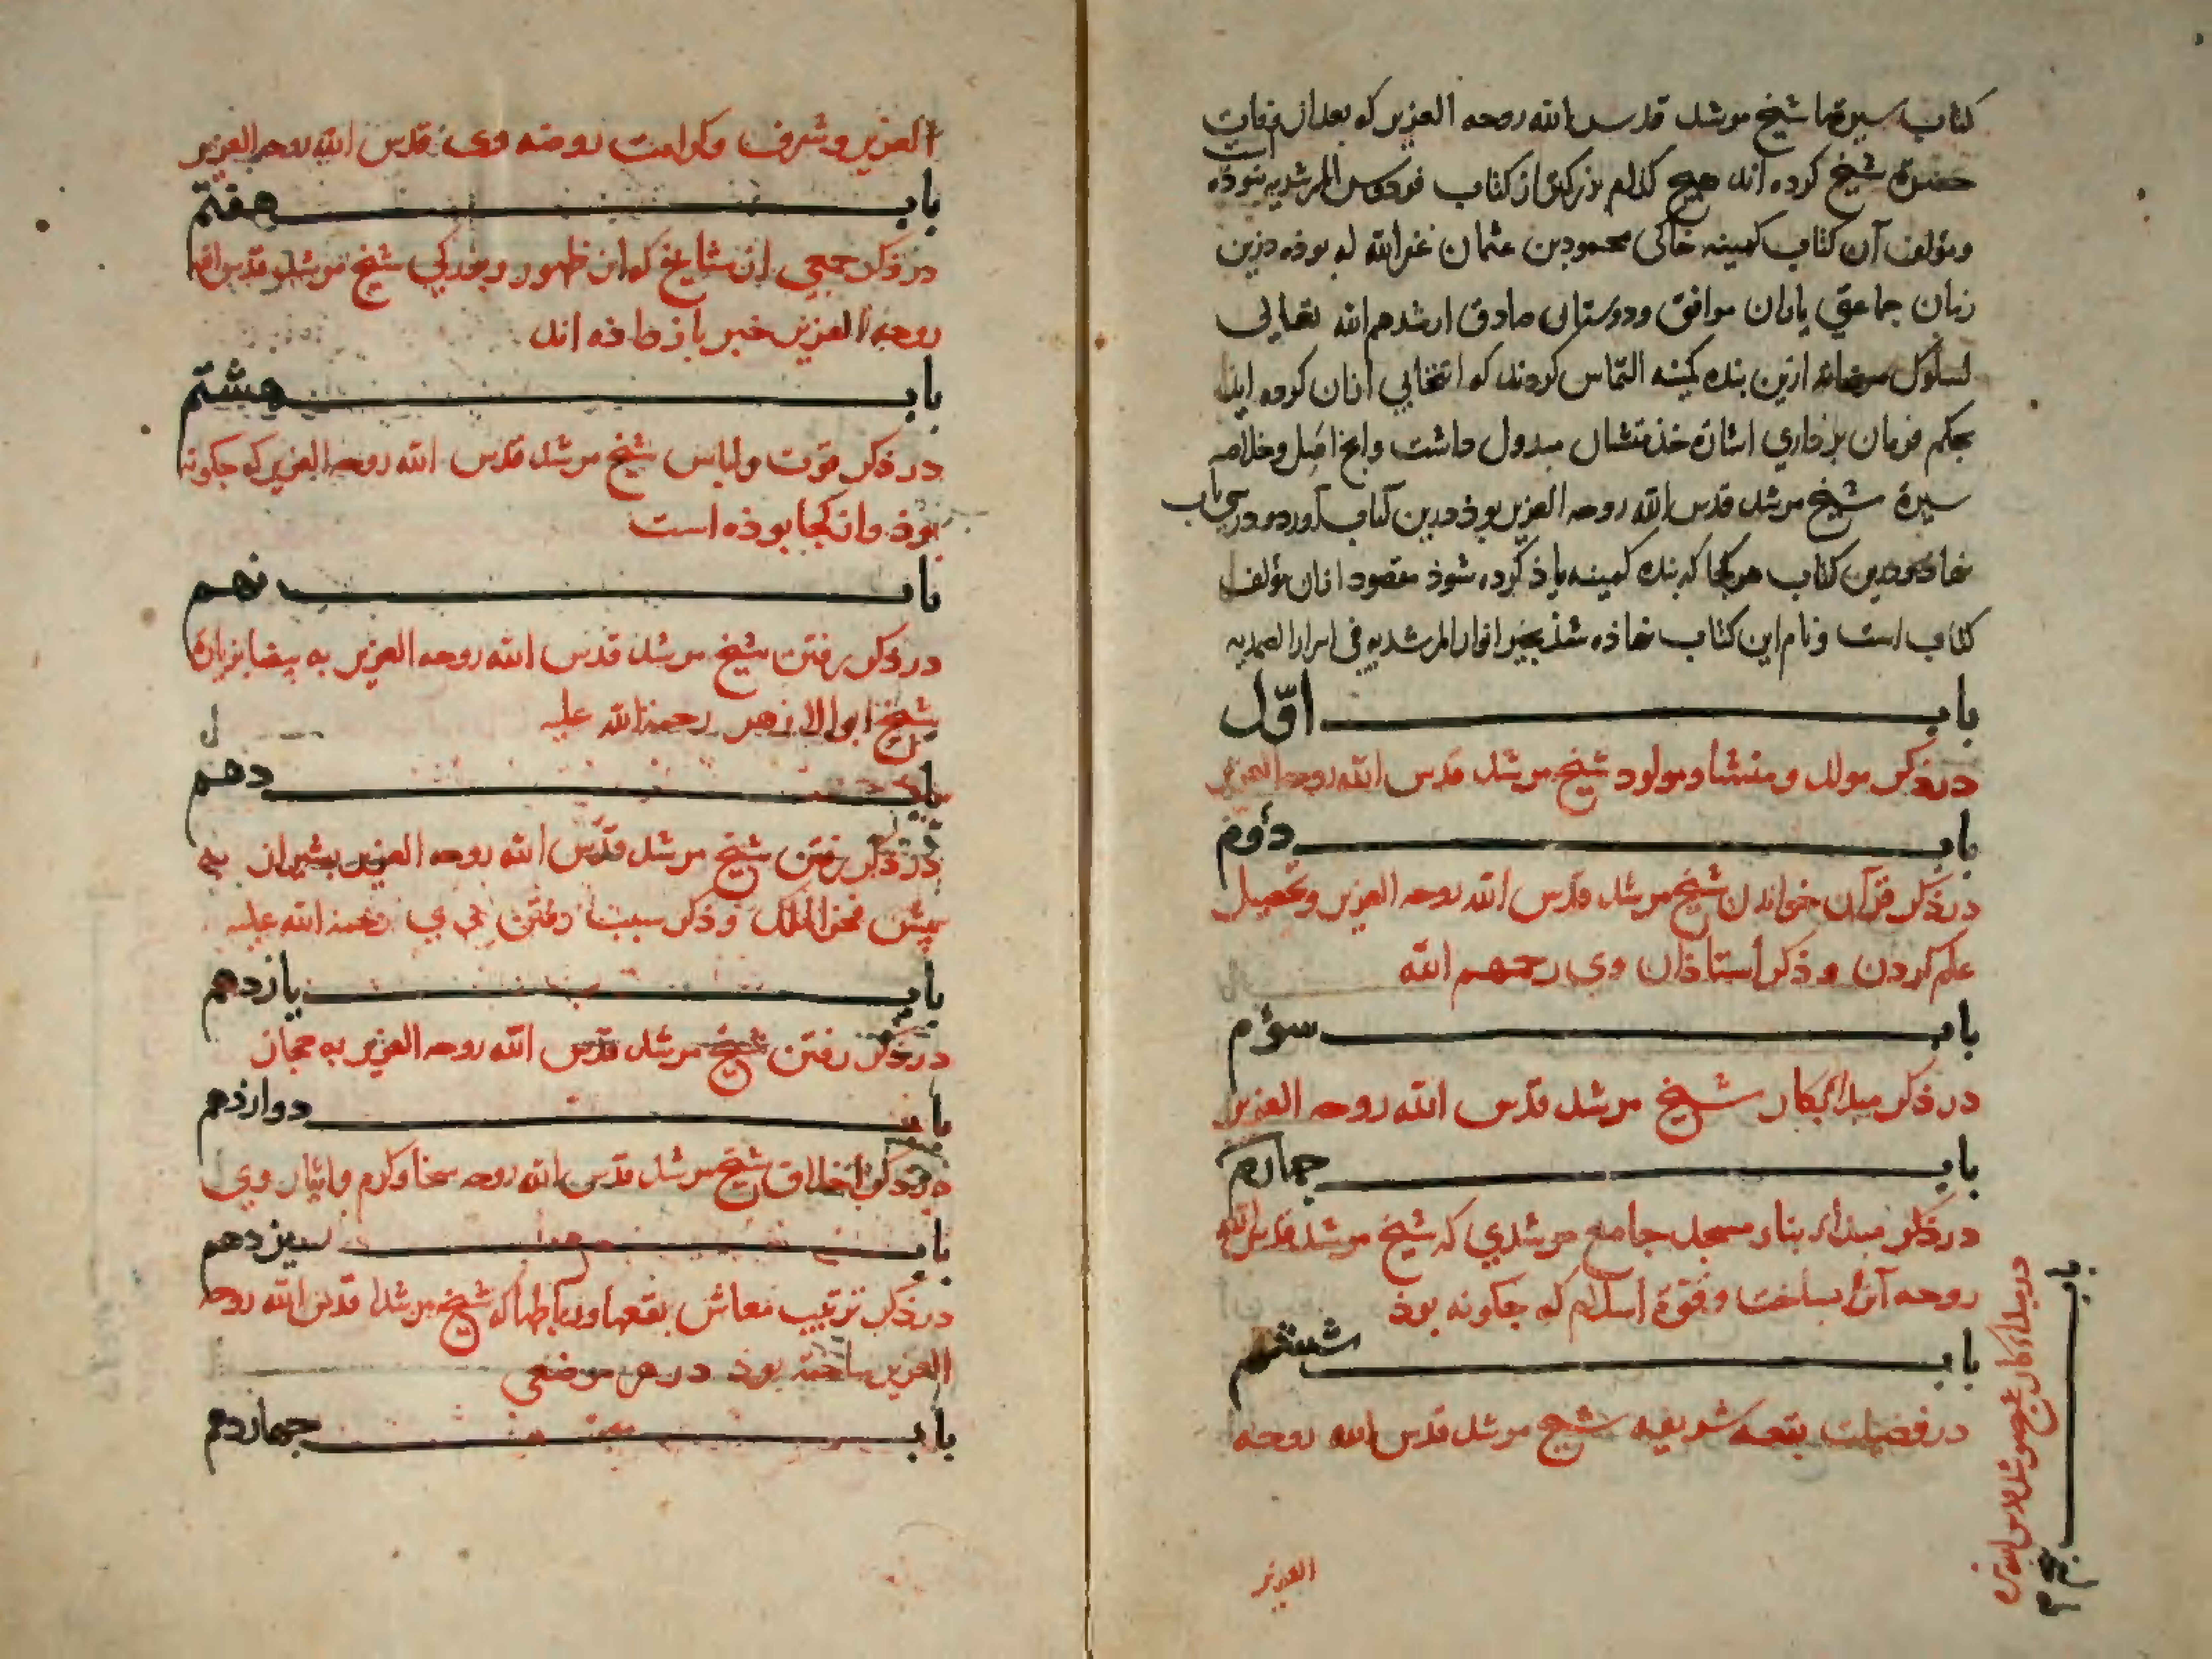 کتاب سیرتها شیخ مرشد قدس الله روحه العزیز که بعد از وفات
حضرة شیخ کرده اند هیچ کدام بزرکتر از کتاب فردوس المرشدیه نبوذه است
ومؤلف آن کتاب کمینه خاکی محمود بن عثمان غفرالله له بوذه درین
زمان جماعتی یاران موافق ودوستان صادق ارشدهم الله تعالی
لسلوک ازین بنده کمینه التماس کردند که انتخابی ازان کرده اید
بحکم فرمان برداری اشارة خذمتشان مبذول داشت وانچ اصل وخلاصه
سیرة شیخ مرشد قدس الله روحه العزیز بوذ درین کتاب آورد ودر سی باب
نهاد ودرین کتاب هرکجا که بنده کمینه یاذ کرده شوذ مقصود ازان مؤلف
کتاب است ونام این کتاب نهاذه شذ بجواهر المرشدیه فی اسرار الصمدیه
باب اوّل
در ذکر مولد و منشا ومولود شیخ مرشد قدس الله روحه العزیز
باب دوم
در ذکر قرآن خواندن شیخ مرشد قدس الله روحه العزیز وتحصیل
علم کردن و ذکر استاذان وی رحمهم الله
باب سوم
در ذکر مبداء کار شیخ مرشد قدس الله روحه العزیز
باب چهارم
در ذکر مبداء بناء مسجد جامع مرشدی که شیخ مرشد قدس الله
روحه آنرا بساخت و قوة اسلام که چکونه بوذ
باب پنجم
در مبداء کار شیخ مرشد قدس الله
باب ششم
در فضیلت بقعه شریفه شیخ مرشد قدس الله روحه
العزیز
العزیز وشرف وکرامت روضه وی قدس الله روحه العزیز
باب هفتم
در ذکر جمعی از مشایخ که از ظهور وبزرکی شیخ مرشد قدس الله
روحه العزیز خبر باز داذه اند
باب هشتم
در ذکر قوت ولباس شیخ مرشد قدس الله روحه العزیز که چکونه
بوذ واز کجا بوذه است
باب نهم
در ذکر رفتن شیخ مرشد قدس الله روحه العزیز به بیضا بزیارة
شیخ ابو الازهر رحمة الله علیه
باب دهم
در ذکر رفتن شیخ مرشد قدس الله روحه العزیز بشیراز به
پیش فخر الملک و ذکر سبب رفتن وی رحمة الله علیه
باب یازدهم
در ذکر رفتن شیخ مرشد قدس الله روحه العزیز به حجاز
باب دوازدهم
در ذکر اخلاق شیخ مرشد قدس الله روحه سخا وکرم وایثار وی
باب سیزدهم
در ذکر ترتیب معاش بقعها ورباطها که شیخ مرشد قدس الله روحه
العزیز ساخته بوذ در هر موضعی
باب چهاردهم